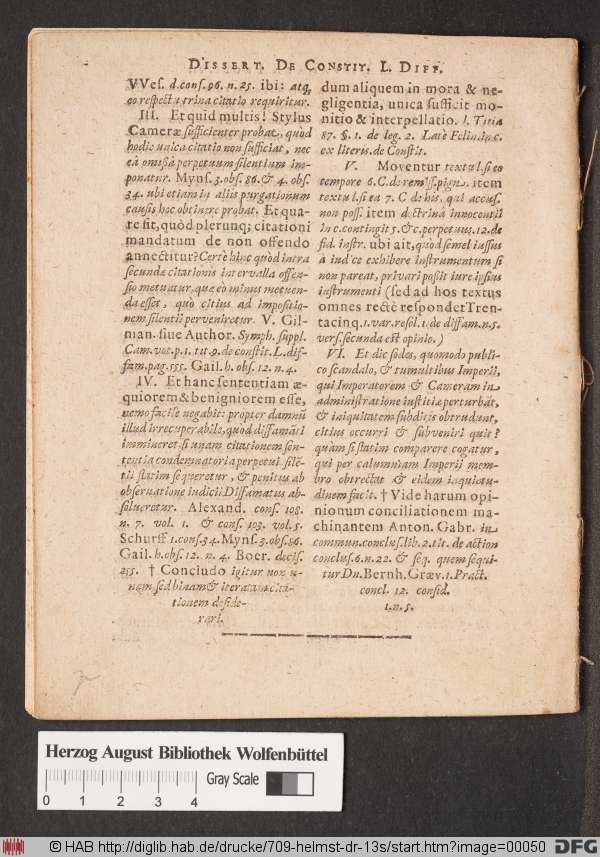 DISSERT. DE CONSTIT. L. DIFF.
VVes. d. cons. 96. n. 25. ibi: atq;
eo respectu trina citatio requiritur.
III. Et quid multis! Stylus
Cameræ sufficienter probat, quòd
hodie unica citatio non sufficiat, nec
eâ omißâ perpetuum silentium im-
ponatur. Myns. 3. obs. 86. & 4. obs.
34. ubi etiam in aliis purgationum
causis hoc obtinere probat. Et qua-
re sit, quòd plerunq; citationi
mandatum de non offendo
annectitur? Certè hinc quòd intra
secundæ citationis intervalla offen-
sio metuatur, quæ eò minus metuen-
da esset, quò citius ad impositio-
nem silentii perveniretur. V. Gil-
man. siue Author. Symph. suppl.
Cam. vot. p. 1. tit. 9. de constit. L. dif-
fam. pag. 555. Gail. h. obs. 12. n. 4.
IV. Et hanc sententiam æ-
quiorem & benigniorem esse,
nemo facilè negabit: propter damnũ
illud irrecuperabile, quod diffamãti
immineret, si unam citationem sen-
tentia condemnatoria perpetui silẽ-
tii statim sequeretur, & penitus ab
observatione iudicii Diffamatus ab-
solueretur. Alexand. cons. 108.
n. 7. vol. 1. & cons. 103. vol. 5.
Schurff. 1. cons. 34. Myns. 3. obs. 86.
Gail. h. obs. 12. n. 4. Boër. decis.
255. † Concludo igitur non u-
nam sed binam & iteratam cita-
tionem deside-
rari.
dum aliquem in mora & ne-
gligentia, unica sufficit mo-
nitio & interpellatio. l. Titia
87. §. 1. de leg. 2. Latè Felin. in c.
ex literis. de Constit.
V. Moventur textu l. si eo
tempore 6. C. de remiss. pign. item
textu l. si ea 7. C. de his, qui accus.
non poss. item doctrina innocentii
in c. contingit 5. & c. perpetuus. 12. de
fid. instr. ubi ait, quòd semel iussus
à iudice exhibere instrumentum si
non pareat, privari poßit iure ipsius
instrumenti (sed ad hos textus
omnes rectè respondet Tren-
tacinq. 1. var. resol. 1. de diffam. n. 5.
vers. secunda est opinio.)
VI. Et dic sodes, quomodo publi-
co scandalo, & tumultibus Imperii,
qui Imperatorem & Cameram in
administratione iustitiæ perturbãt,
& iniquitatem subditis obtrudunt,
citius occurri & subveniri quit?
quàm si statim comparere cogatur,
qui per calumniam Imperii mem-
bro obtrectat & eidem inquietu-
dinem facit. † Vide harum opi-
nionum conciliationem ma-
chinantem Anton. Gabr. in
commun. conclus. lib. 2. tit. de action
conclus. 6. n. 22. & seq. quem sequi-
tur Dn. Bernh. Græv. 1. Pract.
concl. 12. consid.
1. n. 5.
Herzog August Bibliothek Wolfenbüttel
Gray Scale
0 1 2 3 4
© HAB http://diglib.hab.de/drucke/709-helmst-dr-13s/start.htm?image=00050
DFG